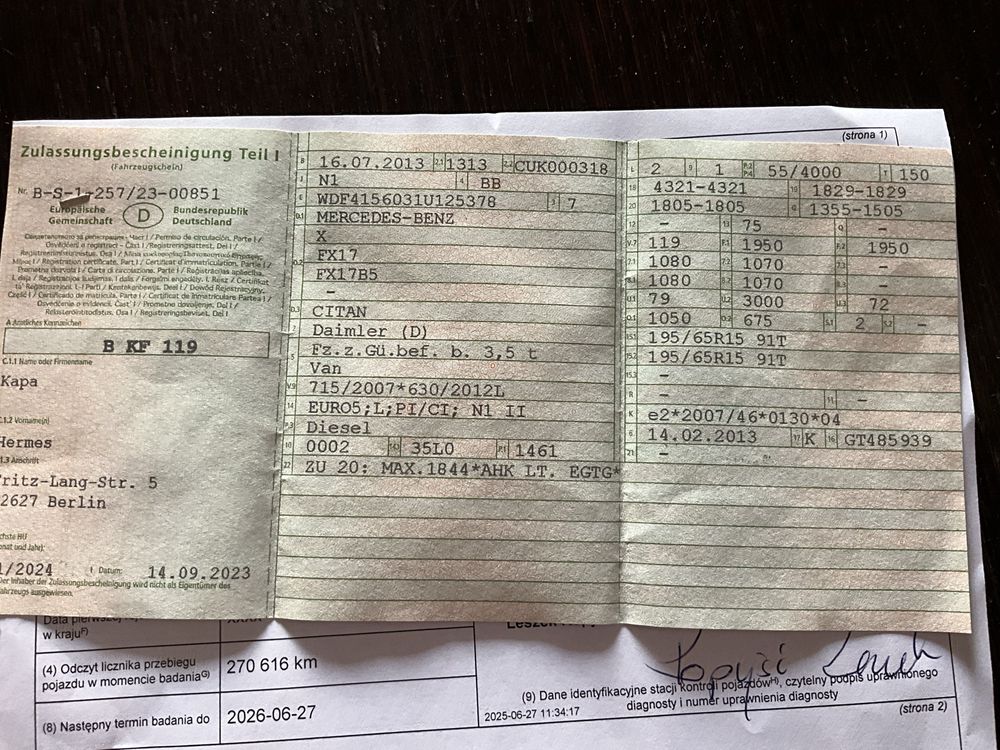 (strona 1)
Zulassungsbescheinigung Teil I
(Fahrzeugschein)
Nr. B-S-1-257/23-00851
Europäische Gemeinschaft
D
Bundesrepublik Deutschland
A Amtliches Kennzeichen
B KF 119
C.1.1 Name oder Firmenname
Kapa
C.1.2 Vorname(n)
Hermes
1.3 Anschrift
ritz-Lang-Str. 5
2627 Berlin
chste HU
onat und Jahr):
1/2024
I Datum: 14.09.2023
Der Inhaber der Zulassungsbescheinigung wird nicht als Eigentümer des
ahrzeugs ausgewiesen.
B 16.07.2013 2.1 1313 2.2 CUK000318
J N1 4 BB
E WDF4156031U125378 3 7
D.1 MERCEDES-BENZ
X
D.2 FX17
FX17B5
–
D.3 CITAN
2 Daimler (D)
5 Fz.z.Gü.bef. b. 3,5 t
Van
V.9 715/2007*630/2012L
14 EURO5;L;PI/CI; N1 II
P.3 Diesel
10 0002 14.1 35L0 P.1 1461
22 ZU 20: MAX.1844*AHK LT. EGTG*
L 2 9 1 P.2 P.4 55/4000 T 150
18 4321-4321 19 1829-1829
20 1805-1805 G 1355-1505
12 – 13 75 Q –
V.7 119 F.1 1950 F.2 1950
7.1 1080 7.2 1070 7.3 –
8.1 1080 8.2 1070 8.3 –
U.1 79 U.2 3000 U.3 72
O.1 1050 O.2 675 S.1 2 S.2 –
15.1 195/65R15 91T
15.2 195/65R15 91T
15.3 –
R – 11 –
K e2*2007/46*0130*04
6 14.02.2013 17 K 16 GT485939
21 –
w krajuF)
(4) Odczyt licznika przebiegu
pojazdu w momencie badaniaG)
270 616 km
(8) Następny termin badania do
2026-06-27
(9) Dane identyfikacyjne stacji kontroli pojazdówH), czytelny podpis uprawnionego
diagnosty i numer uprawnienia diagnosty
2025-06-27 11:34:17
(strona 2)